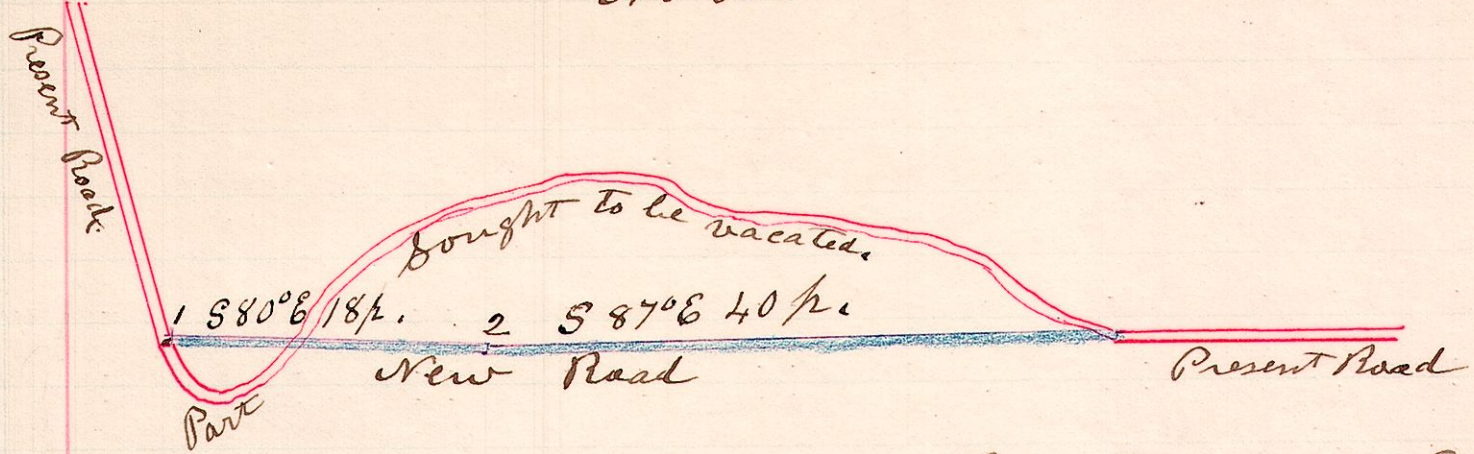 Present Road
Part sought to be vacated.
1 S80°E 18p. 2 S 87°E 40 p.
New Road
Present Road